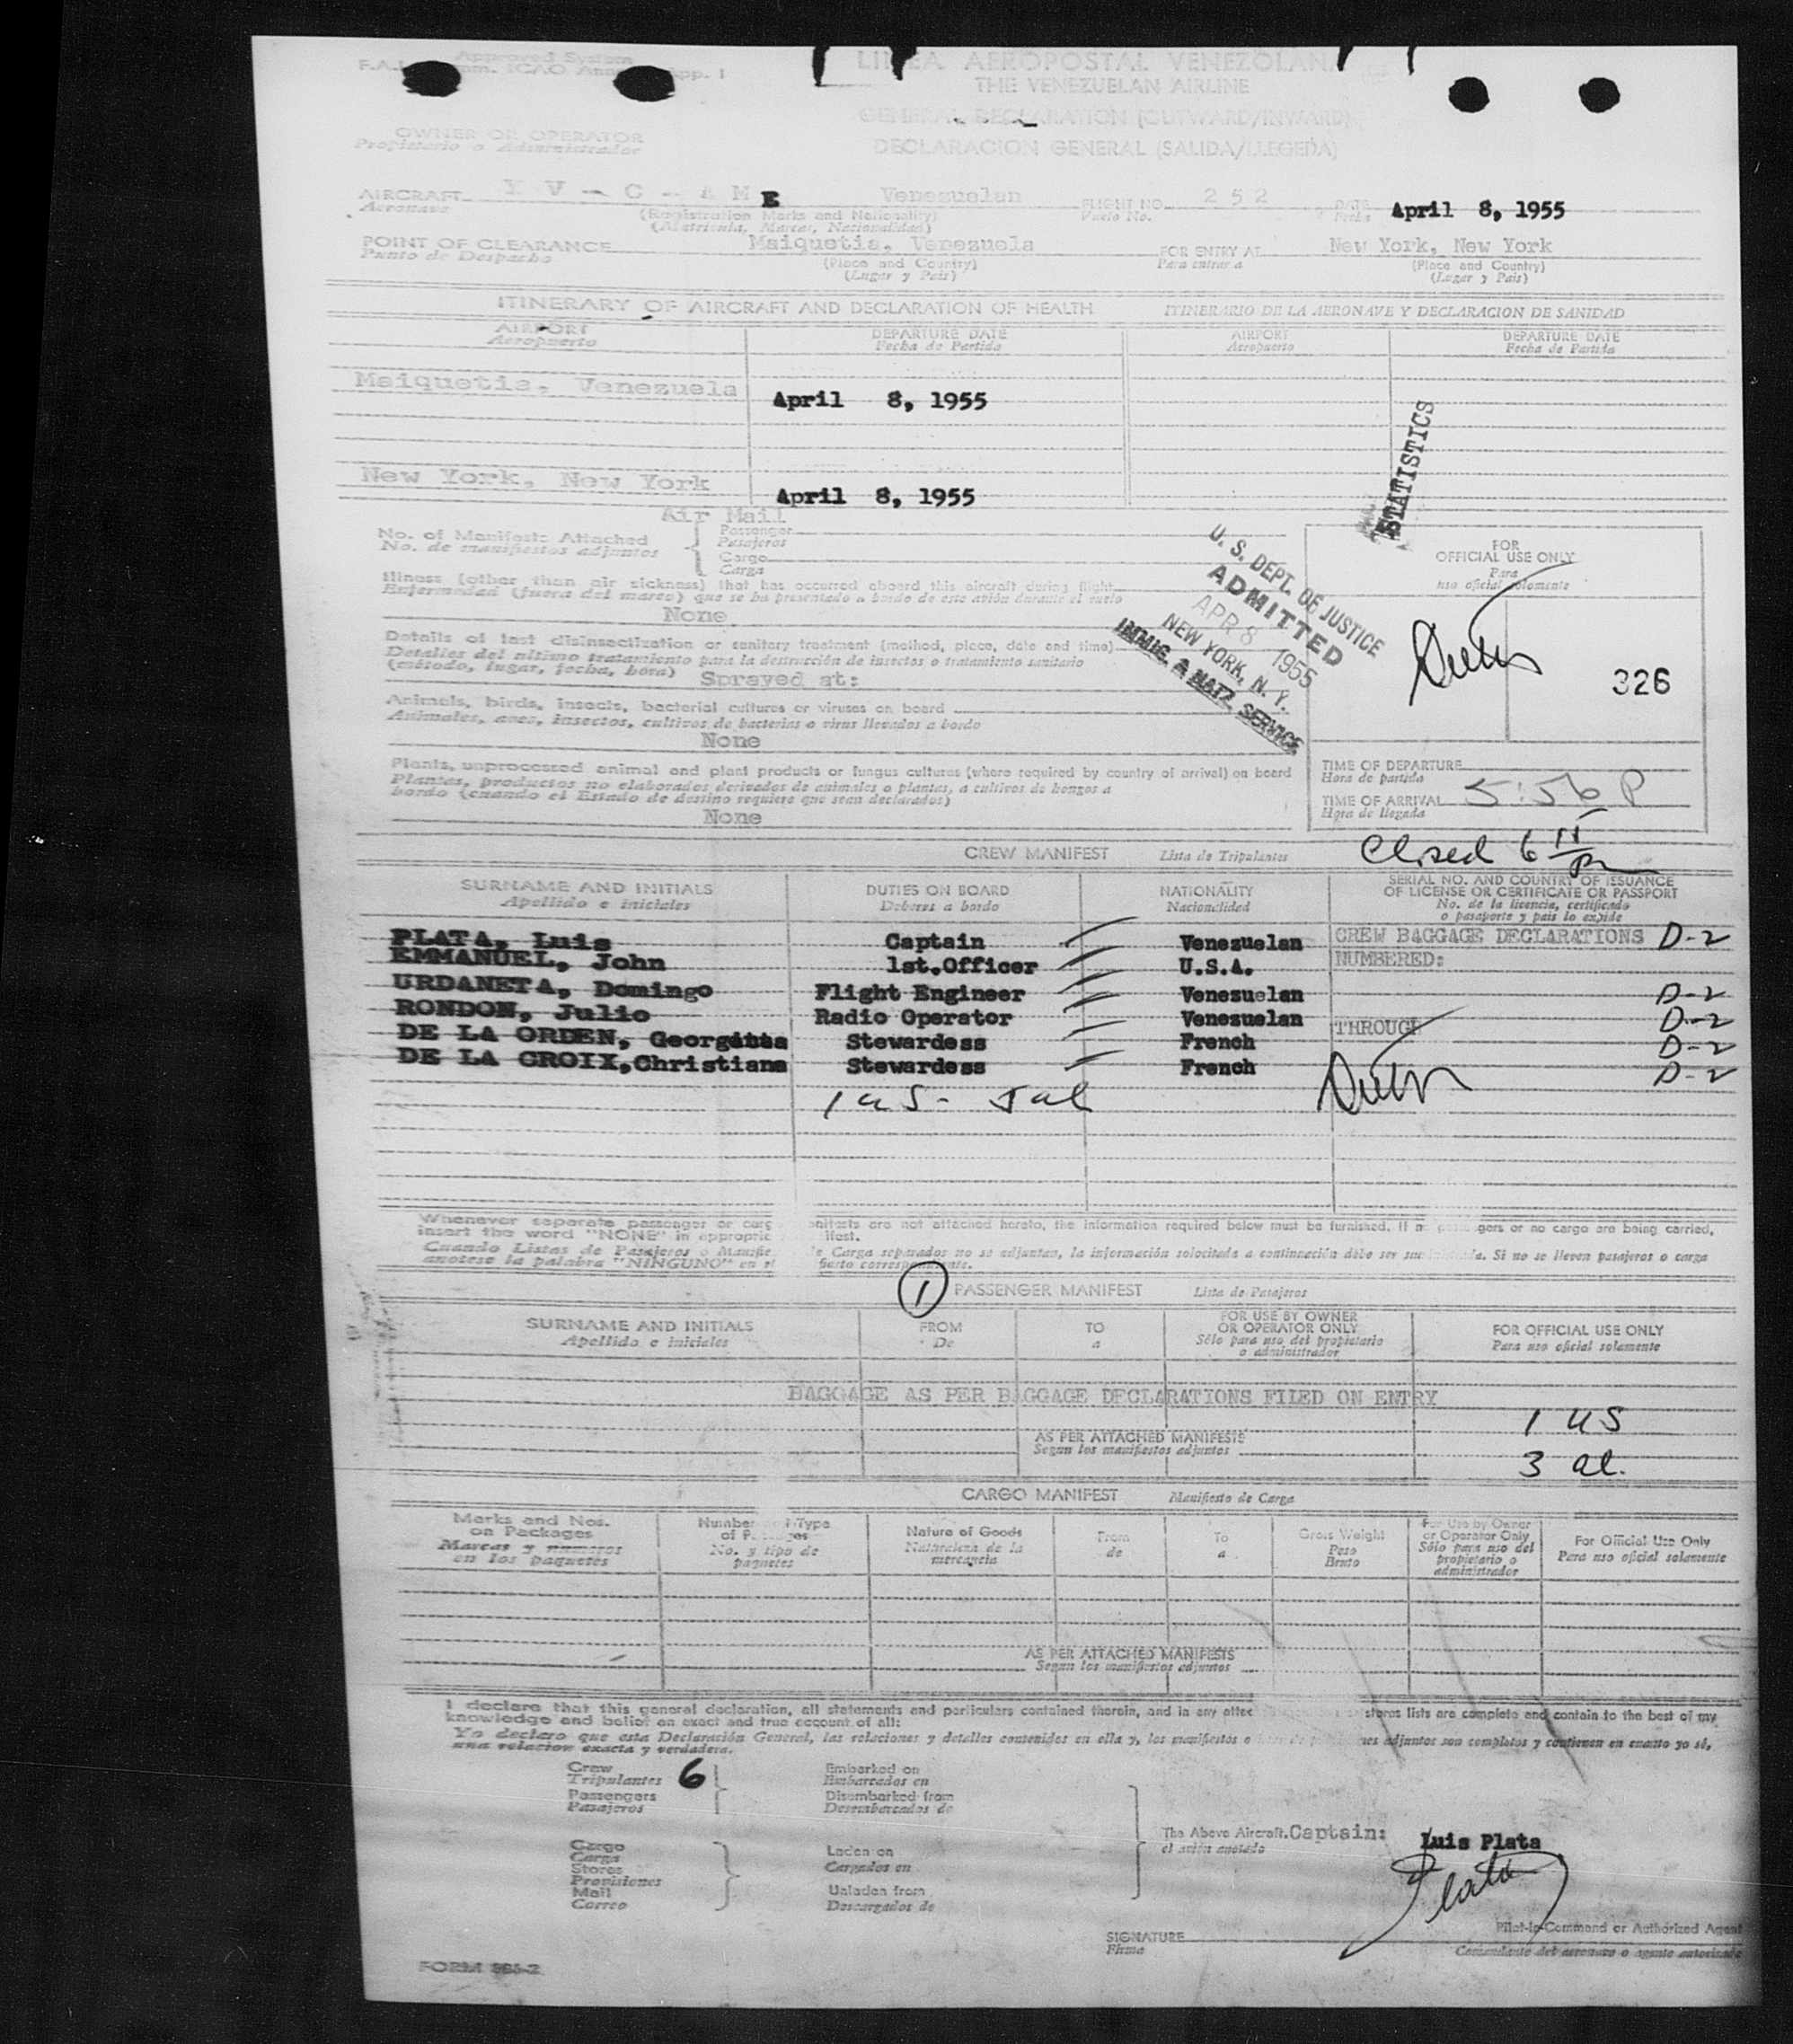 Approved System
LINEA AEROPOSTAL VENEZOLANA
THE VENEZUELAN AIRLINE
GENERAL DECLARATION (OUTWARD/INWARD)
DECLARACION GENERAL (SALIDA/LLEGEDA)
OWNER OR OPERATOR
Propietario o Administrador
AIRCRAFT Y V - C - A M E Venezuelan FLIGHT NO. 252 DATE April 8, 1955
Aeronave (Registration Marks and Nationality) Vuelo No. Fecha
(Matricula, Marcas, Nacionalidad)
POINT OF CLEARANCE Maiquetia, Venezuela FOR ENTRY AT New York, New York
Punto de Despacho (Place and Country) Para entrar a (Place and Country)
(Lugar y Pais) (Lugar y Pais)
ITINERARY OF AIRCRAFT AND DECLARATION OF HEALTH ITINERARIO DE LA AERONAVE Y DECLARACION DE SANIDAD
AIRPORT DEPARTURE DATE AIRPORT DEPARTURE DATE
Aeropuerto Fecha de Partida Aeropuerto Fecha de Partida
Maiquetia, Venezuela April 8, 1955
STATISTICS
New York, New York April 8, 1955
Air Mail
No. of Manifests Attached Passenger
No. de manifiestos adjuntos Pasajeros
Cargo
Carga
Illness (other than air sickness) that has occurred aboard this aircraft during flight
Enfermedad (fuera del mareo) que se ha presentado a bordo de este avión durante el vuelo
None
Details of last disinsectization or sanitary treatment (method, place, date and time)
Detalles del ultimo tratamiento para la destrucción de insectos o tratamiento sanitario
(método, lugar, fecha, hora) Sprayed at:
Animals, birds, insects, bacterial cultures or viruses on board
Animales, aves, insectos, cultivos de bacterias o virus llevados a bordo
None
Plants, unprocessed animal and plant products or fungus cultures (where required by country of arrival) on board
Plantas, productos no elaborados derivados de animales o plantas, a cultivos de hongos a
bordo (cuando el Estado de destino requiere que sean declarados)
None
U. S. DEPT. OF JUSTICE
ADMITTED
APR 8 1955
NEW YORK, N. Y.
IMMIG. & NATZ. SERVICE
FOR
OFFICIAL USE ONLY
Para
uso oficial solamente
326
TIME OF DEPARTURE
Hora de partida
TIME OF ARRIVAL 5:56 P
Hora de llegada
Closed 6 11/
CREW MANIFEST Lista de Tripulantes
SURNAME AND INITIALS DUTIES ON BOARD NATIONALITY SERIAL NO. AND COUNTRY OF ISSUANCE
Apellido e iniciales Deberes a bordo Nacionalidad OF LICENSE OR CERTIFICATE OR PASSPORT
No. de la licencia, certificado
o pasaporte y pais lo expide
PLATA, Luis Captain Venezuelan CREW BAGGAGE DECLARATIONS D-2
EMMANUEL, John 1st.Officer U.S.A. NUMBERED:
URDANETA, Domingo Flight Engineer Venezuelan D-2
RONDON, Julio Radio Operator Venezuelan THROUGH D-2
DE LA ORDEN, Stewardess French D-2
DE LA CROIX,Christiane Stewardess French D-2
1 US - 5 al
Whenever separate passenger or carg nifests are not attached hereto, the information required below must be furnished. If n gers or no cargo are being carried,
insert the word "NONE" in appropric ifest.
Cuando Listas de Pasajeros o Manifie Carga separados no se adjuntan, la información solocitada a continuación debe ser Si no se lleven pasajeros o carga
anotese la palabra "NINGUNO" en
1 PASSENGER MANIFEST Lista de Pasajeros
SURNAME AND INITIALS FROM TO FOR USE BY OWNER FOR OFFICIAL USE ONLY
Apellido e iniciales De a OR OPERATOR ONLY Para uso oficial solamente
Sólo para uso del propietario
o administrador
BAGGAGE AS PER BAGGAGE DECLARATIONS FILED ON ENTRY
1 US
AS PER ATTACHED MANIFESTS
Segun los manifiestos adjuntos
3 al.
CARGO MANIFEST Manifiesto de Carga
Marks and Nos. Number Type Nature of Goods From To Gross Weight For Use by Owner For Official Use Only
on Packages No. y tipo de Naturaleza de la de a Peso or Operator Only Para uso oficial solamente
Marcas y numeros paquetes mercancia Bruto Sólo para uso del
en los paquetes propietario o
administrador
AS PER ATTACHED MANIFESTS
Segun los manifiestos adjuntos
I declare that this general declaration, all statements and particulars contained therein, and in any stores lists are complete and contain to the best of my
knowledge and belief an exact and true account of all:
Yo declaro que esta Declaración General, las relaciones y detalles contenidos en ella y, los manifiestos adjuntos son completos y contienen en cuanto yo sé,
una relacion exacta y verdadera.
Crew 6 Embarked on
Tripulantes Embarcados en
Passengers Disembarked from
Pasajeros Desembarcados de
The Above Aircraft. Captain: Luis Plata
el avión anotado
Cargo Laden on
Carga Cargados en
Stores
Provisiones
Mail Unladen from
Correo Descargados de
Plata
Pilot-in-Command or Authorized Agent
SIGNATURE
Firma Comandante del aeronave o agente autorizado
FORM